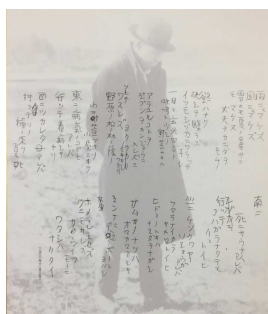 雨ニモマケズ
風ニモマケズ
雪ニモ夏ノ暑サニモ
マケヌ
丈夫ナカラダヲ
モチ
慾ハナク
決シテ瞋ラズ
イツモシヅカニワラッテ
ヰル
一日ニ玄米四合ト
味噌ト少シノ
野菜ヲタベ
アラユルコトヲ
ジブンヲカンジョウニ
入レズニ
ヨクミキキシワカリ
ソシテ
ワスレズ
野原ノ松ノ林ノ蔭ノ
小サナ萱ブキノ
小屋ニヰテ
東ニ病気ノコドモ
アレバ
行ッテ看病シテ
ヤリ
西ニツカレタ母アレバ
行ッテソノ
稲ノ束ヲ負ヒ
南ニ
死ニサウナ人
アレバ
行ッテ
コハガラナクテモ
イヽトイヒ
北ニケンクヮヤ
ソショウガ
アレバ
ツマラナイカラ
ヤメロトイヒ
ヒドリノトキハ
ナミダヲナガシ
サムサノナツハ
オロオロアルキ
ミンナニ
デクノボート
ヨバレ
ホメラレモセズ
クニモサレズ
サウイフモノニ
ワタシハ
ナリタイ